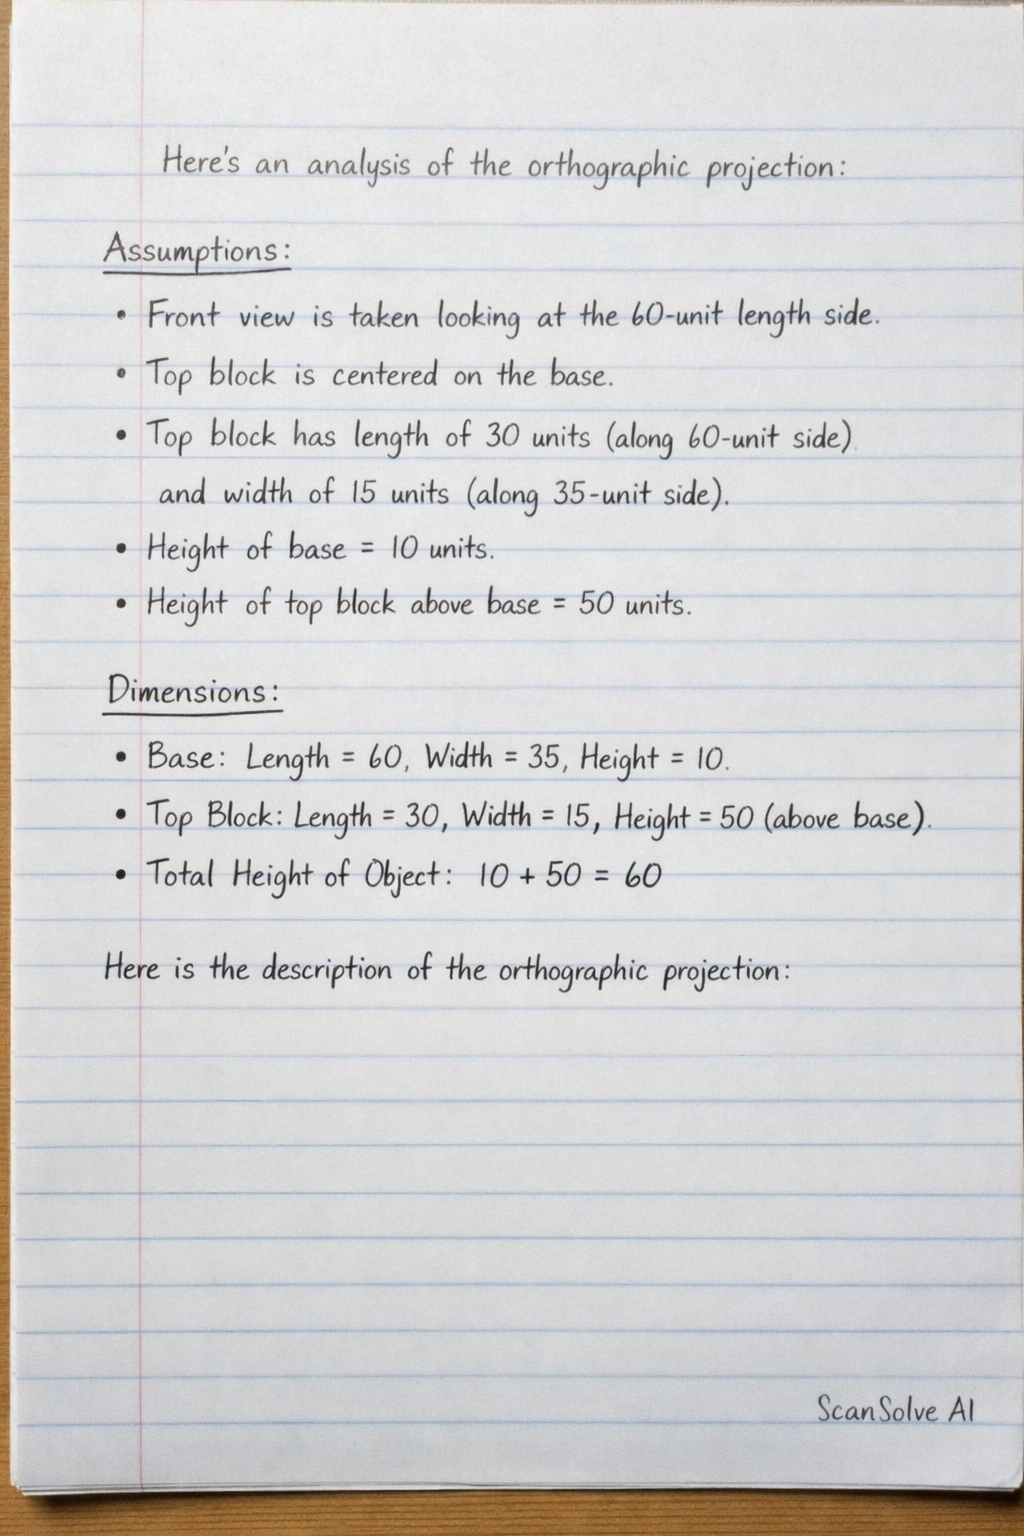 Here's an analysis of the orthographic projection:
Assumptions:
• Front view is taken looking at the 60-unit length side.
• Top block is centered on the base.
• Top block has length of 30 units (along 60-unit side)
and width of 15 units (along 35-unit side).
• Height of base = 10 units.
• Height of top block above base = 50 units.
Dimensions:
• Base: Length = 60, Width = 35, Height = 10.
• Top Block: Length = 30, Width = 15, Height = 50 (above base).
• Total Height of Object: 10 + 50 = 60
Here is the description of the orthographic projection:
ScanSolve AI